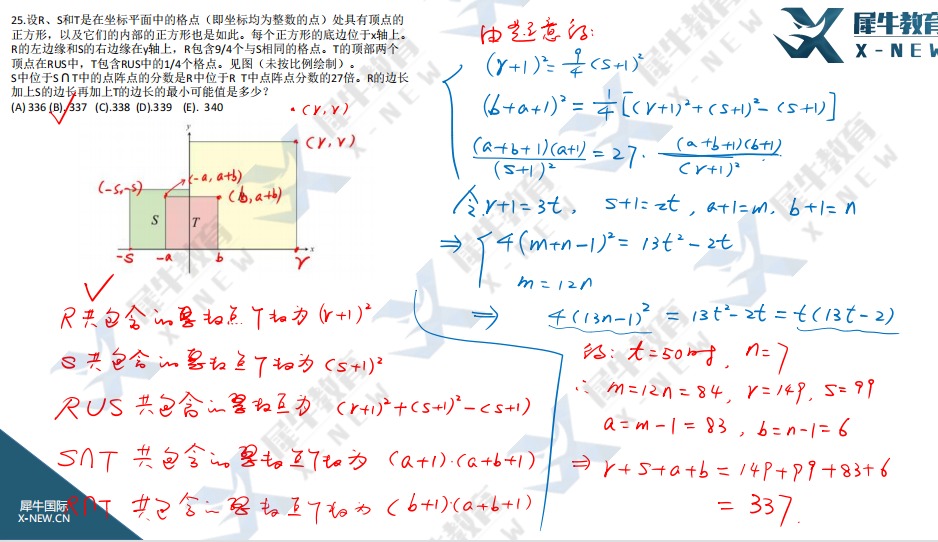 25.设R、S和T是在坐标平面中的格点（即坐标均为整数的点）处具有顶点的
正方形，以及它们的内部的正方形也是如此。每个正方形的底边位于x轴上。
R的左边缘和S的右边缘在y轴上，R包含9/4个与S相同的格点。T的顶部两个
顶点在RUS中，T包含RUS中的1/4个格点。见图（未按比例绘制）。
S中位于S∩T中的点阵点的分数是R中位于R T中点阵点分数的27倍。R的边长
加上S的边长再加上T的边长的最小可能值是多少？
(A) 336 (B). 337 (C).338 (D).339 (E). 340
(r,r)
y
(r,r)
(-s,-s)
(-a, a+b)
(b,a+b)
S
T
x
-s
-a
b
r
R共包含的点个数为 (r+1)²
S共包含的点个数为 (s+1)²
RUS 共包含的为 (r+1)²+(s+1)²-(s+1)
S∩T 共包含的点个数为 (a+1)·(a+b+1)
R∩T 共包含的点个数为 (b+1)(a+b+1)
由题意得:
(r+1)²=9/4(s+1)²
(b+a+1)²=1/4[(r+1)²+(s+1)²-(s+1)]
(a+b+1)(a+1)/(s+1)²=27·(a+b+1)(b+1)/(r+1)²
令r+1=3t, s+1=2t, a+1=m, b+1=n
⇒ 4(m+n-1)²=13t²-2t
m=12n
⇒ 4(13n-1)²=13t²-2t=t(13t-2)
得: t=50时, n=7
∴ m=12n=84, r=149, s=99
a=m-1=83, b=n-1=6
⇒ r+s+a+b=149+99+83+6
=337.
犀牛教育
X-NEW
犀牛国际
X-NEW.CN